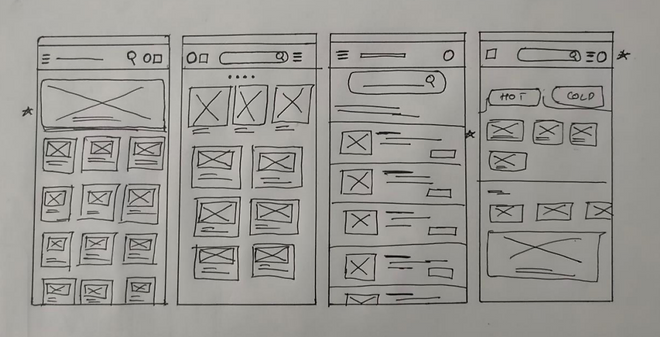 HOT
COLD